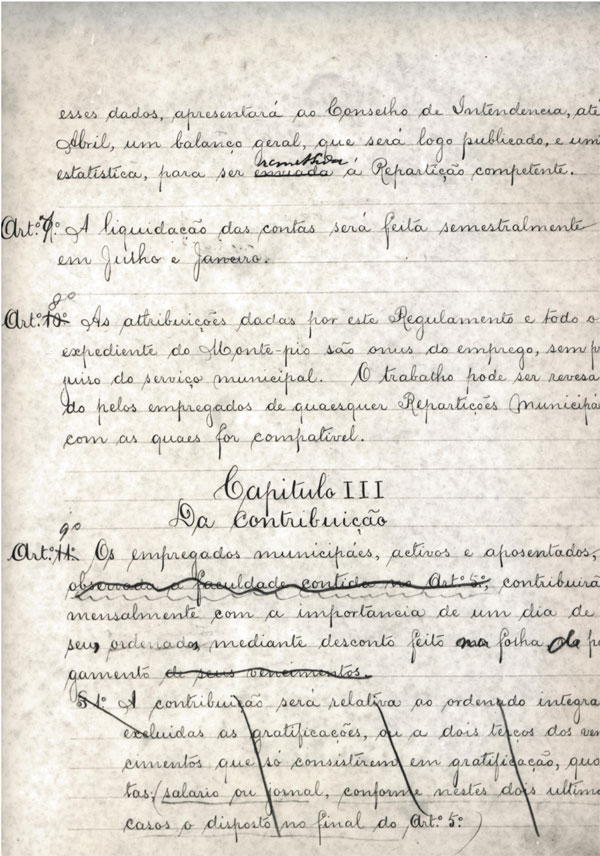 esses dados, apresentará ao Conselho de Intendencia, até
Abril, um balanço geral, que será logo publicado, e um
remettida
estatistica, para ser enviada á Repartição competente.
Art.º 7.º A liquidação das contas será feita semestralmente
em Julho e Janeiro.
8º
Art.º 10.º As attribuições dadas por este Regulamento e todo o
expediente do Monte-pio são onus do emprego, sem p
juiso do serviço municipal. O trabalho pode ser revesa
do pelos empregados de quaesquer Repartições Municipa
com as quaes for compativel.
Capitulo III
Da contribuição
9º
Art.º 11.º Os empregados municipáes, activos e aposentados,
observada a faculdade contida no Art.º 5.º, contribuirã
mensalmente com a importancia de um dia de
seus ordenados mediante desconto feito na folha de pa
gamento de seus vencimentos.
§ 1.º A contribuição será relativa ao ordenado integra
excluidas as gratificacões, ou a dois terços dos ven
cimentos que só consistirem em gratificação, quo
tas, (salario ou jornal, conforme nestes dois ultimo
casos o disposto no final do Art.º 5.º)